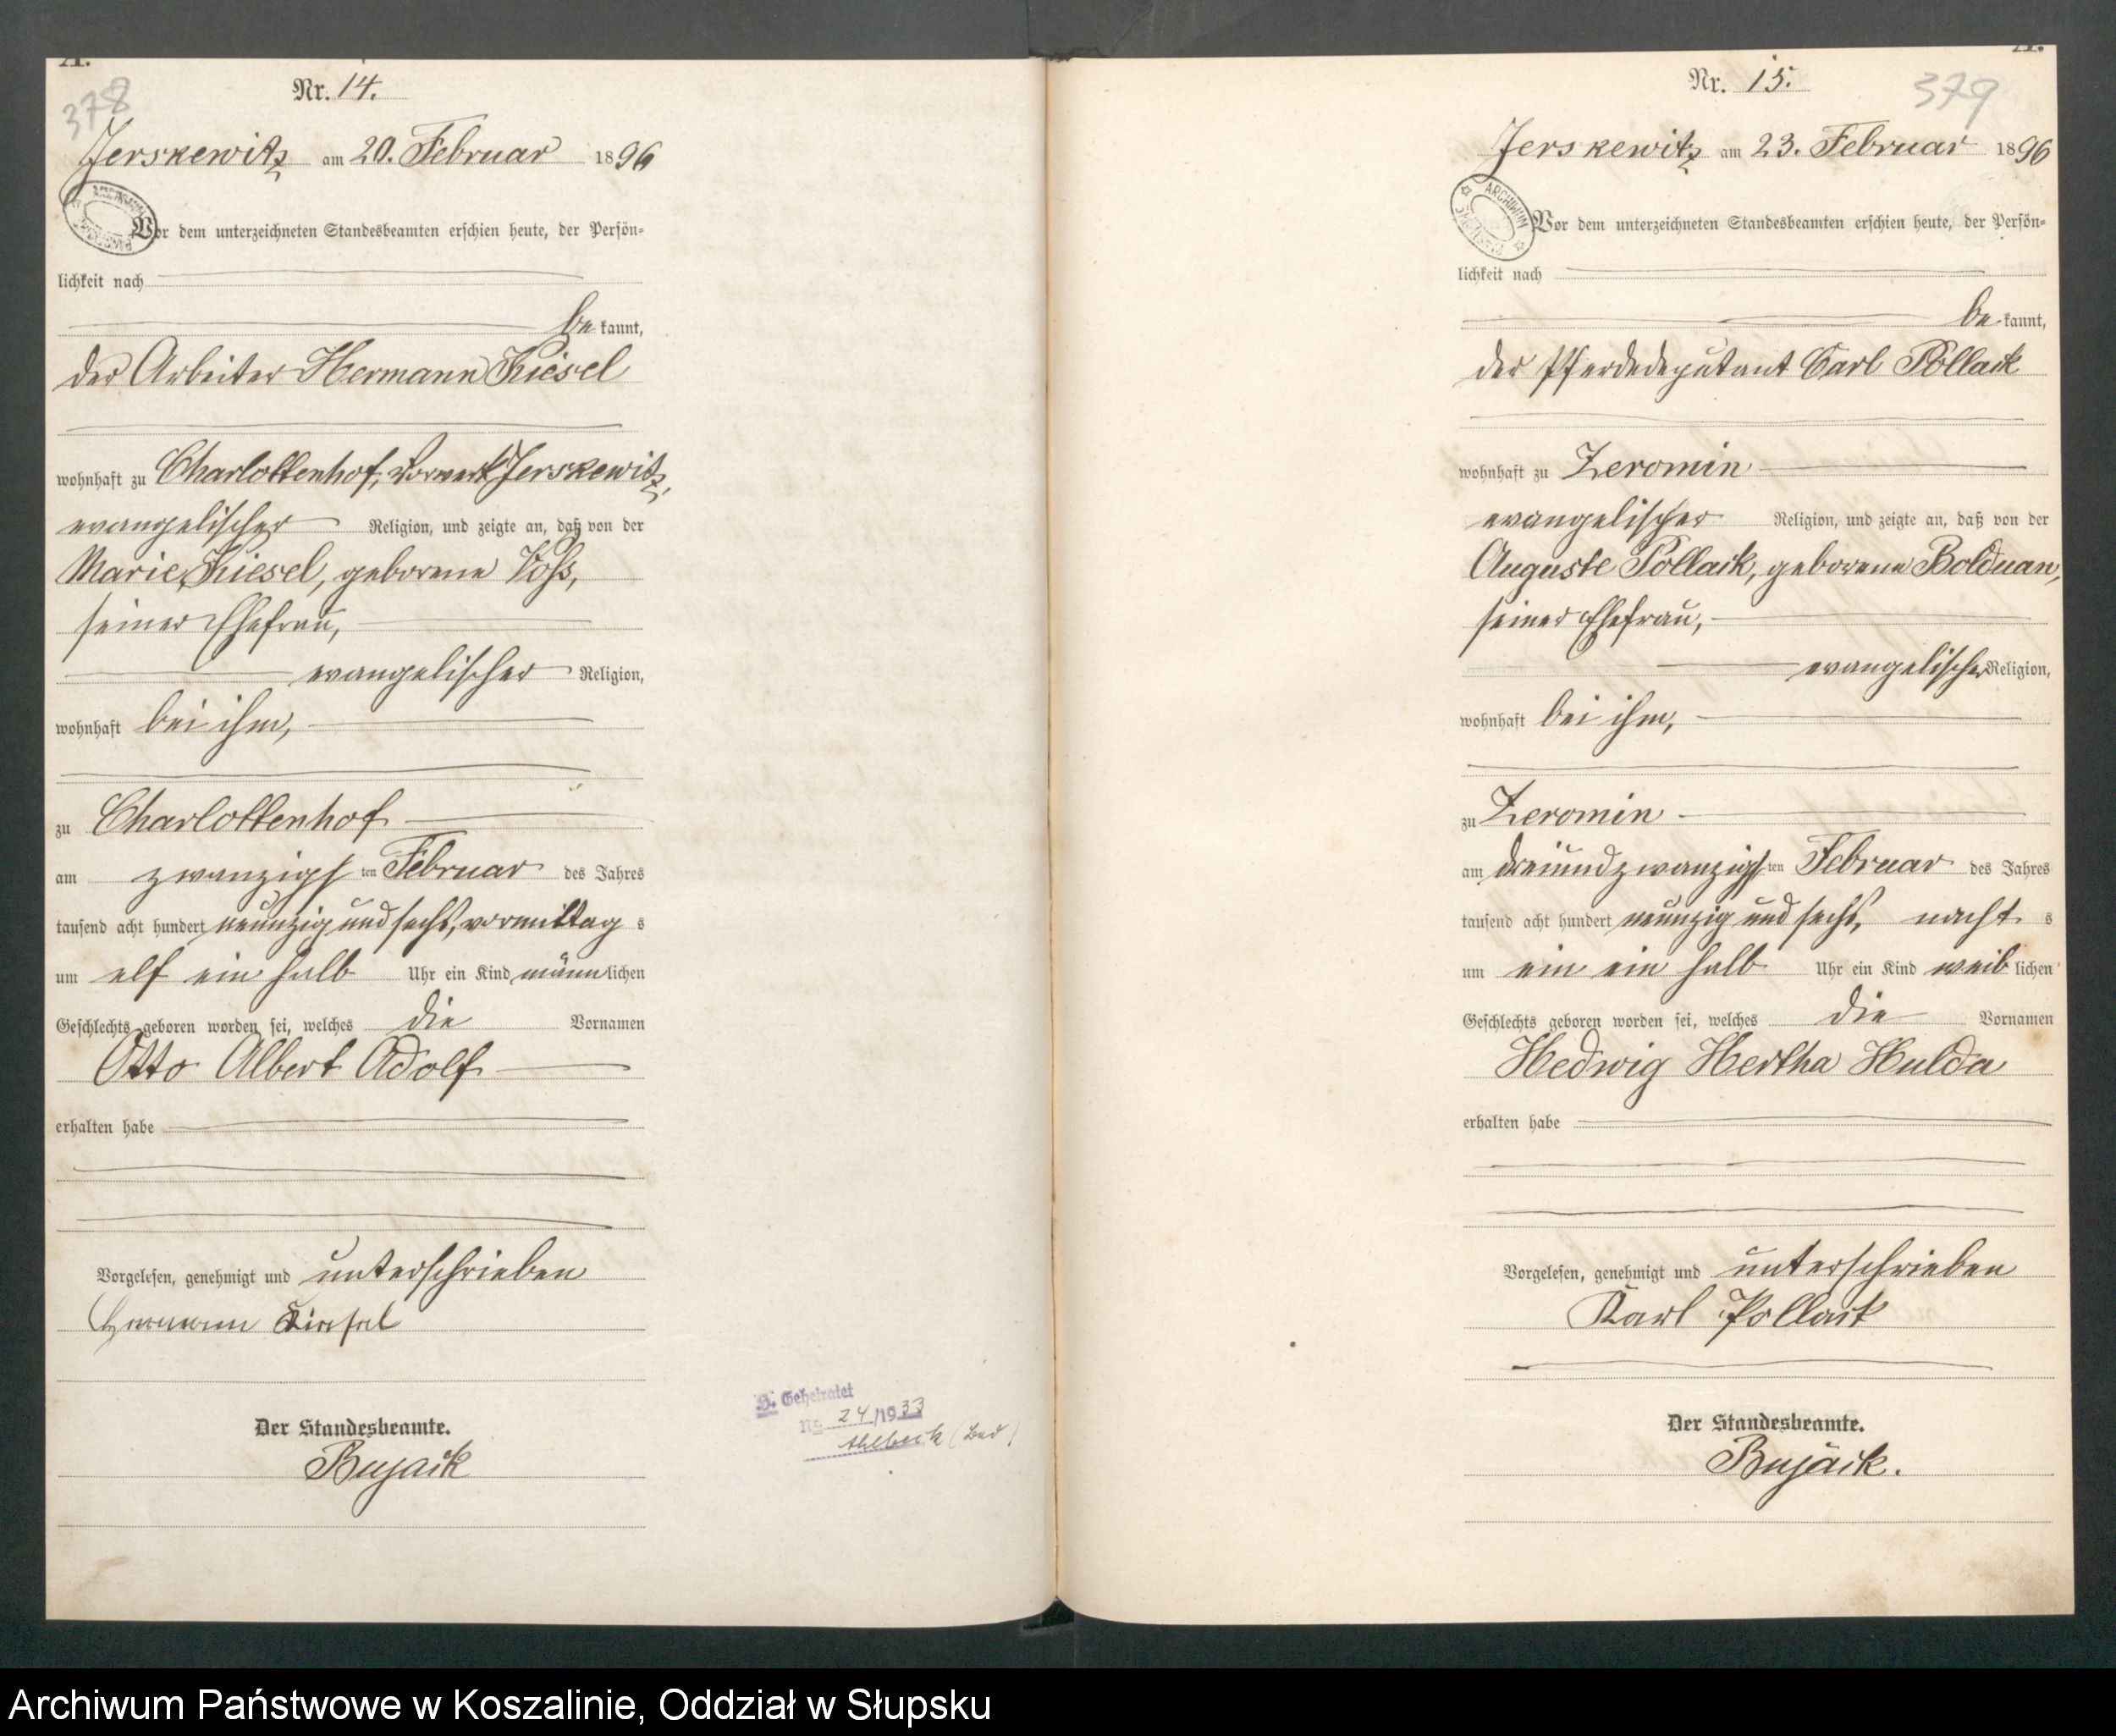 A.
378
Nr. 14.
Jerskewitz am 20. Februar 1896
Vor dem unterzeichneten Standesbeamten erschien heute, der Persön-
lichkeit nach
be kannt,
der Arbeiter Hermann Kiesel
wohnhaft zu Charlottenhof, Vorwerk Jerskewitz,
evangelischer Religion, und zeigte an, daß von der
Marie Kiesel, geborene Voß,
seiner Ehefrau,
evangelischer Religion,
wohnhaft bei ihm,
zu Charlottenhof
am zwanzigs ten Februar des Jahres
tausend acht hundert neunzig und sechs, vormittag s
um elf ein halb Uhr ein Kind männ lichen
Geschlechts geboren worden sei, welches die Vornamen
Otto Albert Adolf
erhalten habe
Vorgelesen, genehmigt und unterschrieben
Hermann Kiesel
Der Standesbeamte.
Bujack
Geheiratet
Nr. 24/1933
Ahlbeck (Bad)
A.
379
Nr. 15.
Jerskewitz am 23. Februar 1896
ARCHIWUM
Vor dem unterzeichneten Standesbeamten erschien heute, der Persön-
lichkeit nach
be kannt,
der Pferdedeputant Carl Pollack
wohnhaft zu Zeromin
evangelischer Religion, und zeigte an, daß von der
Auguste Pollack, geborene Bolduan,
seiner Ehefrau,
evangelischer Religion,
wohnhaft bei ihm,
zu Zeromin
am dreiundzwanzigs ten Februar des Jahres
tausend acht hundert neunzig und sechs, nacht s
um ein ein halb Uhr ein Kind weib lichen
Geschlechts geboren worden sei, welches die Vornamen
Hedwig Hertha Hulda
erhalten habe
Vorgelesen, genehmigt und unterschrieben
Karl Pollack
Der Standesbeamte.
Bujack.
Archiwum Państwowe w Koszalinie, Oddział w Słupsku